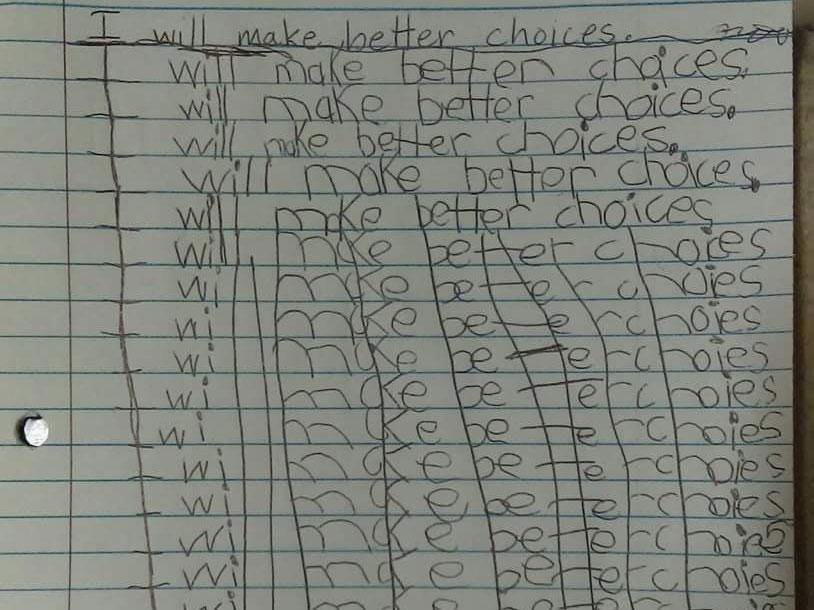 I will make better choices.
I will make better choices.
I will make better choices.
I will make better choices.
I will make better choices.
I will make better choices
I will make better choies
I will make better choies
I will make better choies
I will make better choies
I will make better choies
I will make better choies
I will make better choies
I will make better choies
I will make better choies
I will make better choies